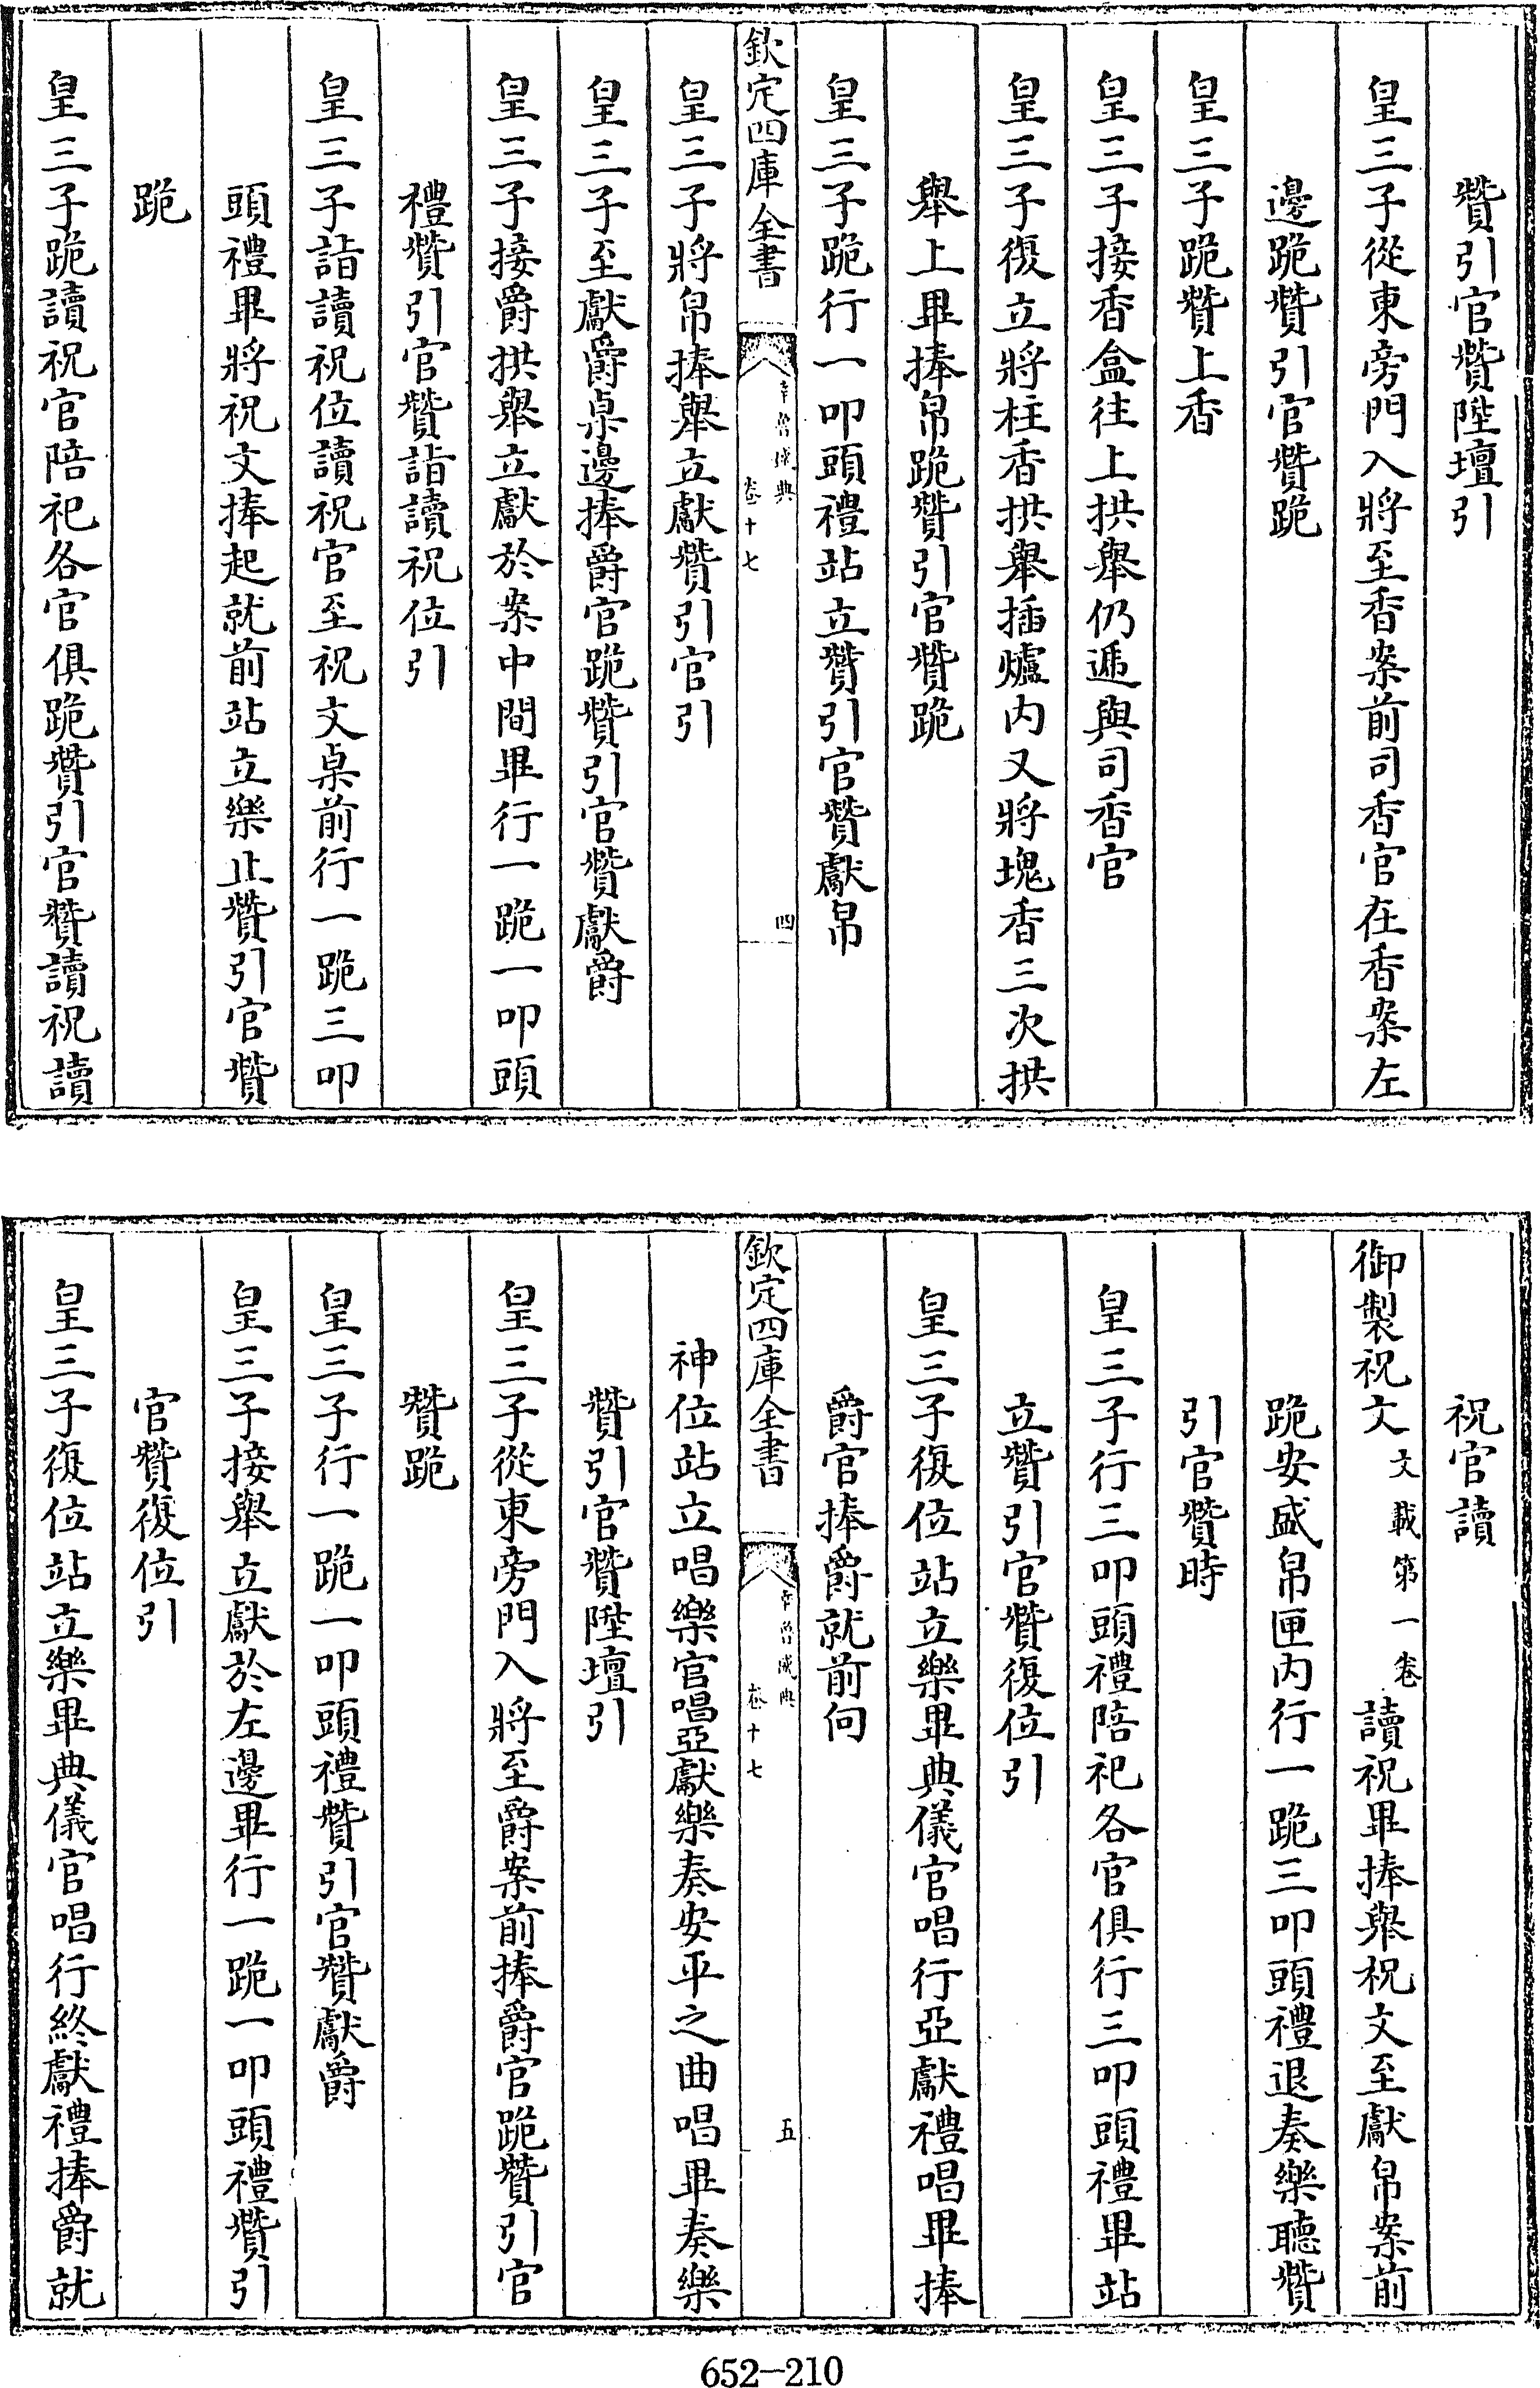 贊引官贊陞壇引
皇三子從東旁門入將至香案前司香官在香案左
邊跪贊引官贊跪
皇三子跪贊上香
皇三子接香盒往上拱舉仍遞與司香官
皇三子復立將柱香拱舉插爐内又將塊香三次拱
舉上畢捧帛跪贊引官贊跪
皇三子跪行一叩頭禮站立贊引官贊獻帛
欽定四庫全書
幸魯盛典
卷十七
四
皇三子將帛捧舉立獻贊引官引
皇三子至獻爵桌邊捧爵官跪贊引官贊獻爵
皇三子接爵拱舉立獻於案中間畢行一跪一叩頭
禮贊引官贊詣讀祝位引
皇三子詣讀祝位讀祝官至祝文桌前行一跪三叩
頭禮畢將祝文捧起就前站立樂止贊引官贊
跪
皇三子跪讀祝官陪祀各官俱跪贊引官贊讀祝讀
祝官讀
御製祝文文載第一卷讀祝畢捧舉祝文至獻帛案前
跪安盛帛匣内行一跪三叩頭禮退奏樂聽贊
引官贊時
皇三子行三叩頭禮陪祀各官俱行三叩頭禮畢站
立贊引官贊復位引
皇三子復位站立樂畢典儀官唱行亞獻禮唱畢捧
爵官捧爵就前向
欽定四庫全書
幸魯盛典
卷十七
五
神位站立唱樂官唱亞獻樂奏安平之曲唱畢奏樂
贊引官贊陞壇引
皇三子從東旁門入將至爵案前捧爵官跪贊引官
贊跪
皇三子行一跪一叩頭禮贊引官贊獻爵
皇三子接舉立獻於左邊畢行一跪一叩頭禮贊引
官贊復位引
皇三子復位站立樂畢典儀官唱行終獻禮捧爵就
652-210